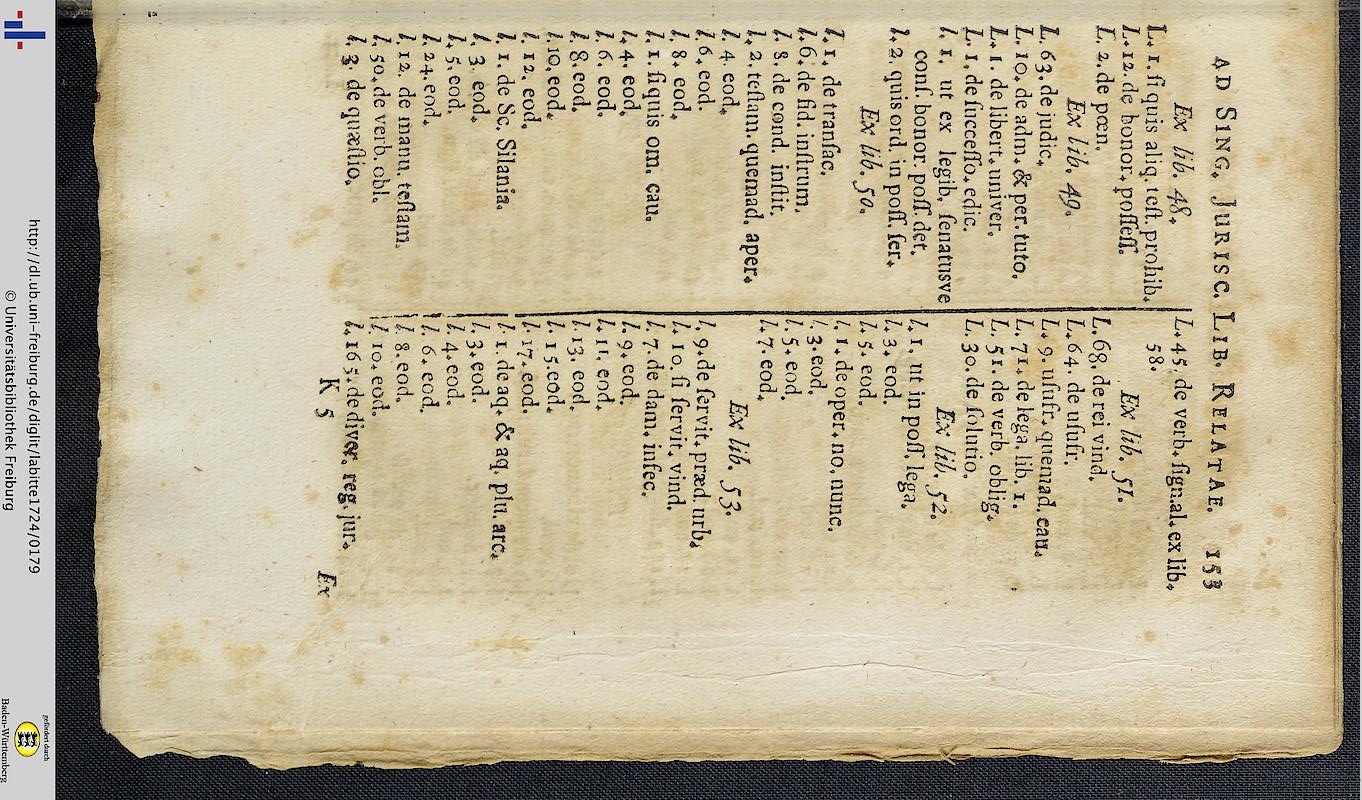 AD SING. JURISC. LIB. RELATAE. 153
Ex lib. 48.
L. 1. ſi quis aliq. teſt. prohib.
L. 12. de bonor. poſſeſſ.
L. 2. de pœn.
Ex lib. 49.
L. 63. de judic.
L. 10. de adm. & per. tuto.
L. 1. de libert. univer.
L. 1. de ſucceſſo. edic.
l. 1. ut ex legib. ſenatusve
conſ. bonor. poſſ. det.
l. 2. quis ord. in poſſ. ſer.
Ex lib. 50.
l. 1. de tranſac.
l. 6. de fid. inſtrum.
l. 8. de cond. inſtit.
l. 2. teſtam. quemad. aper.
l. 4. eod.
l. 6. eod.
l. 8. eod.
l. 1. ſi quis om. cau.
l. 4. eod.
l. 6. eod.
l. 8. eod.
l. 10. eod.
l. 12. eod.
l. 1. de Sc. Silania.
l. 3. eod.
l. 5. eod.
l. 24. eod.
l. 12. de manu. teſtam.
l. 50. de verb. obl.
l. 3. de quæſtio.
L. 45. de verb. ſign. al. ex lib.
58.
Ex lib. 51.
L. 68. de rei vind.
L. 64. de uſufr.
L. 9. uſufr. quemad. cau.
L. 71. de lega. lib. 1.
L. 51. de verb. oblig.
L. 30. de ſolutio.
Ex lib. 52.
l. 1. ut in poſſ. lega.
l. 3. eod.
l. 5. eod.
l. 1. de oper. no. nunc.
l. 3. eod.
l. 5. eod.
l. 7. eod.
Ex lib. 53.
l. 9. de ſervit. præd. urb.
l. 10. ſi ſervit. vind.
l. 7. de dam. infec.
l. 9. eod.
l. 11. eod.
l. 13. eod.
l. 15. eod.
l. 17. eod.
l. 1. de aq. & aq. plu. arc.
l. 3. eod.
l. 4. eod.
l. 6. eod.
l. 8. eod.
l. 10. eod.
l. 165. de diver. reg. jur.
K 5 Ex
http://dl.ub.uni-freiburg.de/diglit/labitte1724/0179
© Universitätsbibliothek Freiburg
gefördert durch
Baden-Württemberg